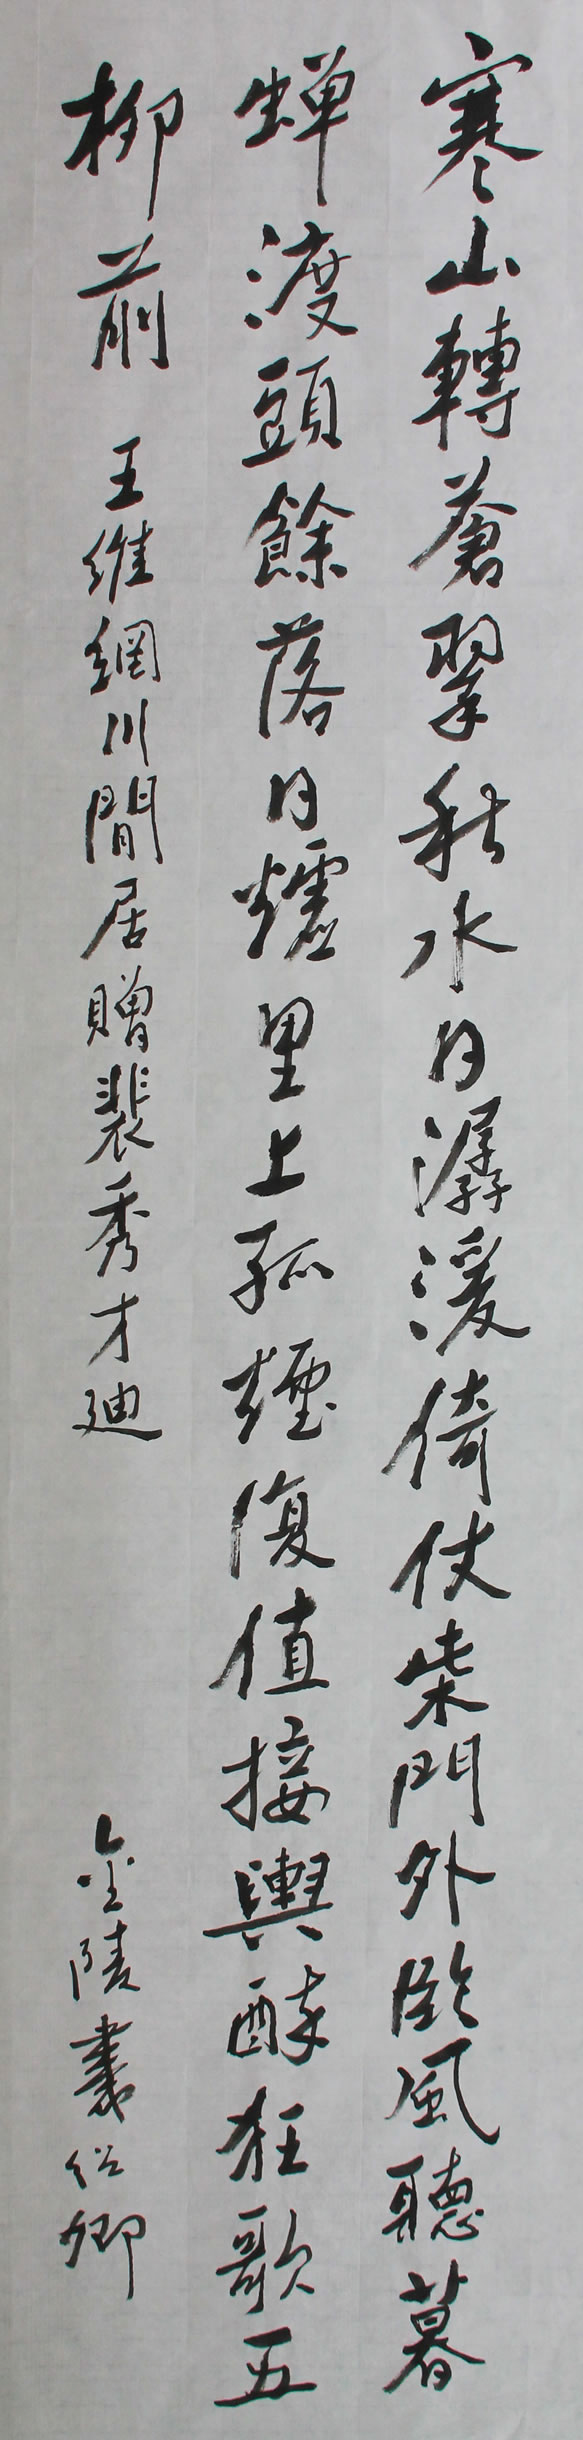 寒山轉蒼翠秋水日潺湲倚仗柴門外臨風聽暮
蝉渡頭餘落日墟里上孤煙復值接輿醉狂歌五
柳前 王維網川閒居贈裴秀才迪 金陵 卿